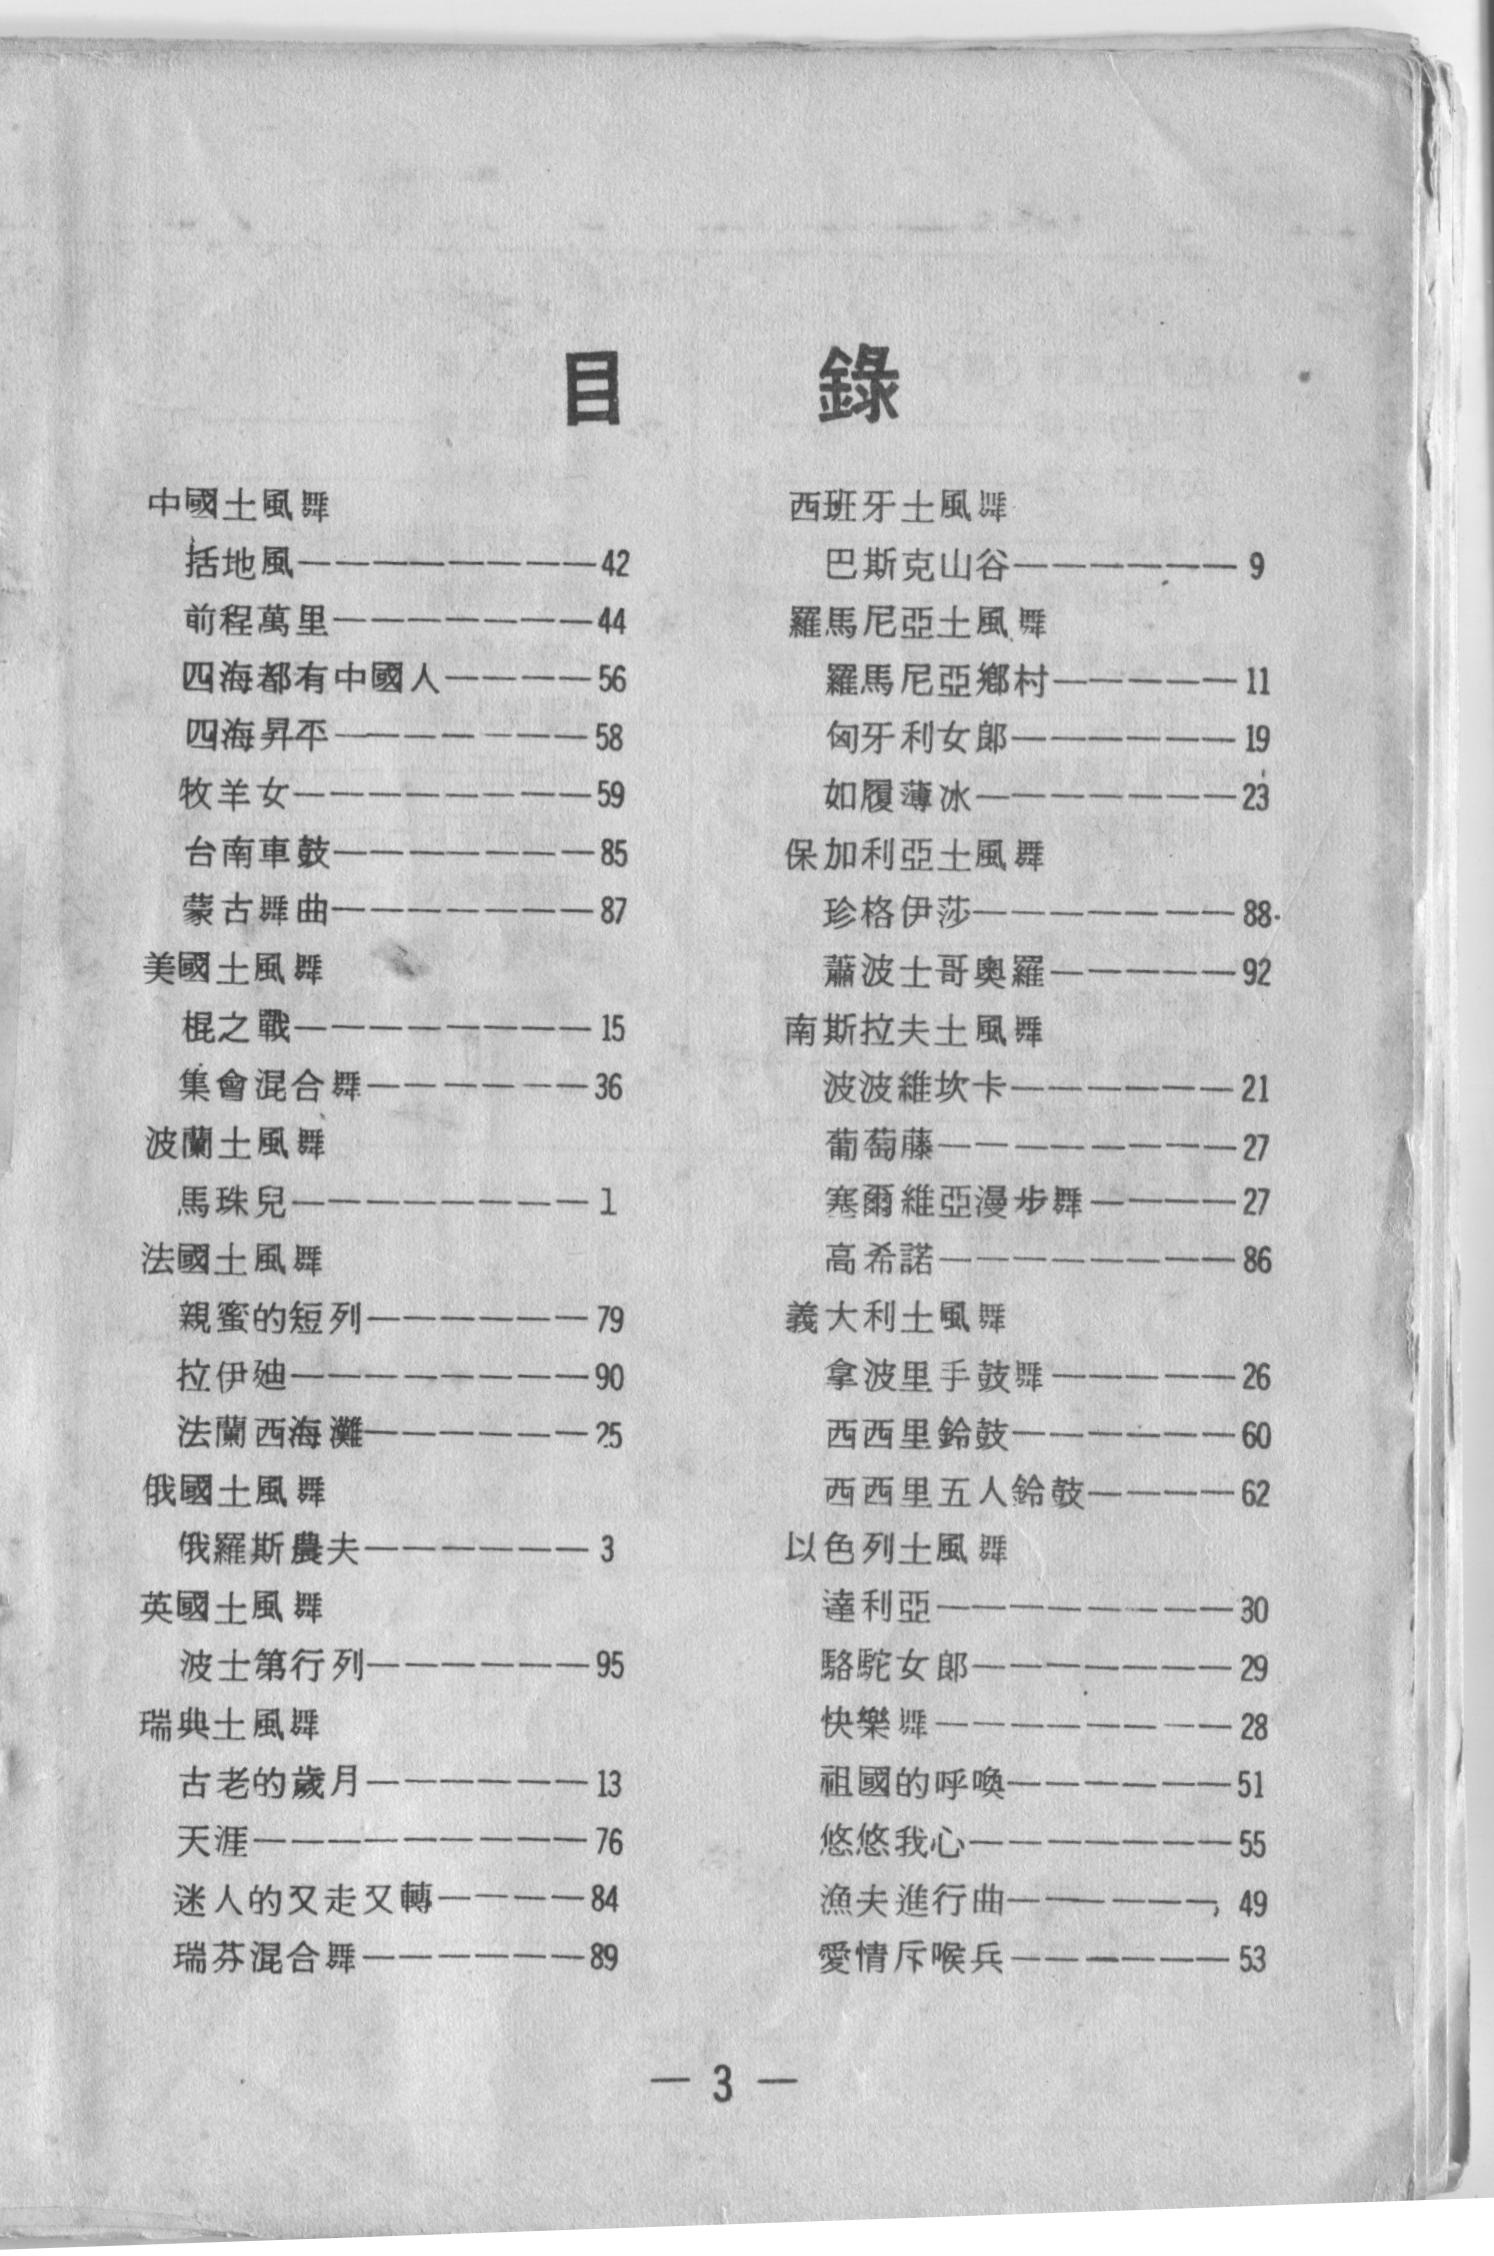 目錄
中國土風舞
括地風————————42
前程萬里———————44
四海都有中國人————56
四海昇平———————58
牧羊女————————59
台南車鼓———————85
蒙古舞曲———————87
美國土風舞
棍之戰————————15
集會混合舞——————36
波蘭土風舞
馬珠兒————————1
法國土風舞
親蜜的短列——————79
拉伊廸————————90
法蘭西海灘——————25
俄國土風舞
俄羅斯農夫——————3
英國土風舞
波士第行列——————95
瑞典土風舞
古老的歲月——————13
天涯—————————76
迷人的又走又轉————84
瑞芬混合舞——————89
西班牙土風舞
巴斯克山谷——————9
羅馬尼亞土風舞
羅馬尼亞鄉村—————11
匈牙利女郎——————19
如履薄冰———————23
保加利亞土風舞
珍格伊莎———————88
蕭波士哥奧羅—————92
南斯拉夫土風舞
波波維坎卡——————21
葡萄藤————————27
塞爾維亞漫步舞————27
高希諾————————86
義大利土風舞
拿波里手鼓舞—————26
西西里鈴鼓——————60
西西里五人鈴鼓————62
以色列土風舞
達利亞————————30
駱駝女郎———————29
快樂舞————————28
祖國的呼喚——————51
悠悠我心———————55
漁夫進行曲——————49
愛情斥喉兵——————53
— 3 —